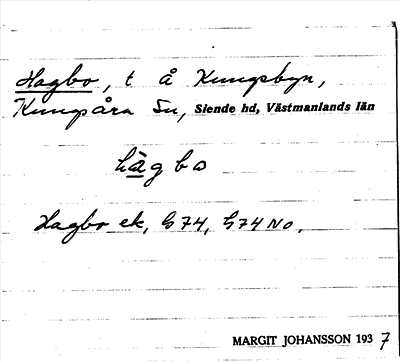 Hagbo, t å Kungsbyn,
Kungsåra Sn, Siende hd, Västmanlands län
hàgbo
Hagbo ek, G74, G74 NO.
MARGIT JOHANSSON 1937